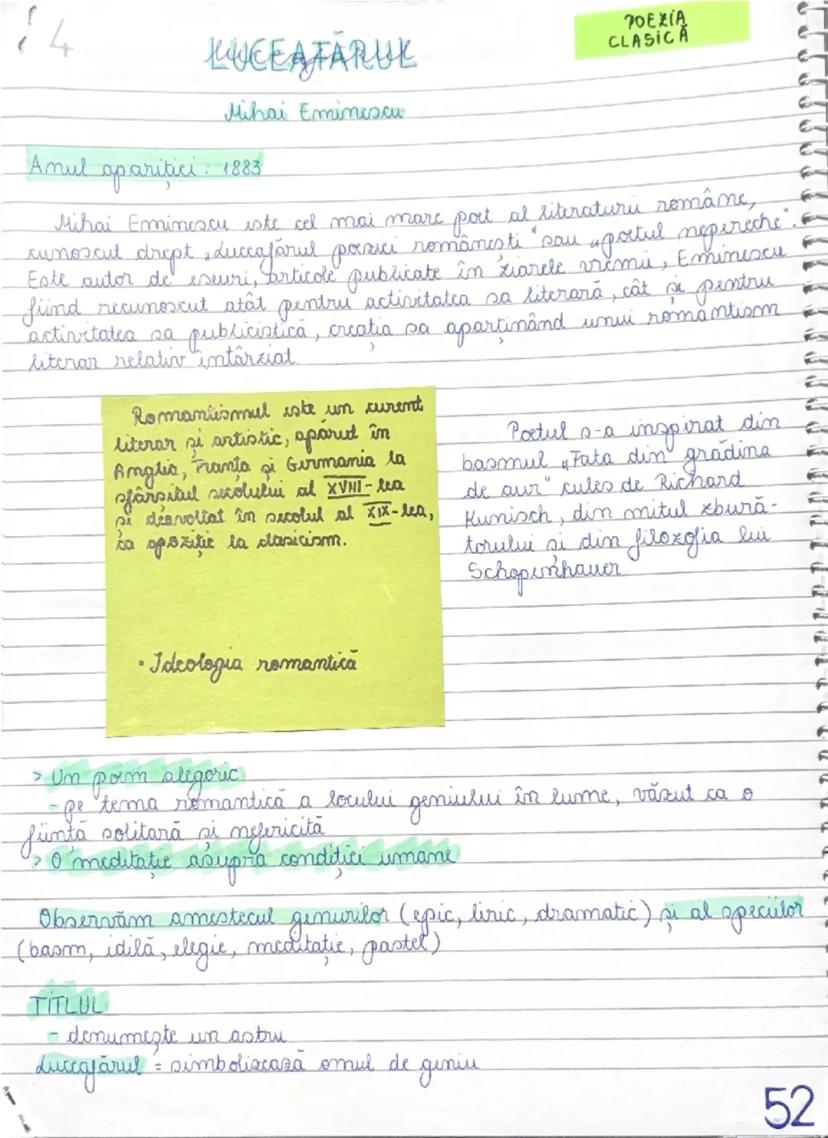 4
POEZIA
CLASICĂ
LUCEAFĂRUL
Mihai Eminescu
Anul apariției: 1883
Mihai Eminescu este cel mai mare poet al literaturii române,
cunoscut drept „Luceafărul poeziei românești" sau „poetul nepereche".
Este autor de eseuri, articole publicate în ziarele vremii, Eminescu
fiind recunoscut atât pentru activitatea sa literară, cât și pentru
activitatea sa publicistică, creația sa aparținând unui romantism
literar relativ întârziat.
Romantismul este un curent
literar și artistic, apărut în
Anglia, Franța și Germania la
sfârșitul secolului al XVIII-lea
și dezvoltat în secolul al XIX-lea,
ca opoziție la clasicism.
• Ideologia romantică
Poetul s-a inspirat din
basmul „Fata din grădina
de aur" cules de Richard
Kunisch, din mitul zbură-
torului și din filozofia lui
Schopenhauer
> Un poem alegoric
- pe tema romantică a locului geniului în lume, văzut ca o
ființă solitară și nefericită
> O meditație asupra condiției umane
Observăm amestecul genurilor (epic, liric, dramatic) și al speciilor
(basm, idilă, elegie, meditație, pastel)
TITLUL
- denumește un astru
Luceafărul = simbolizează omul de geniu
52